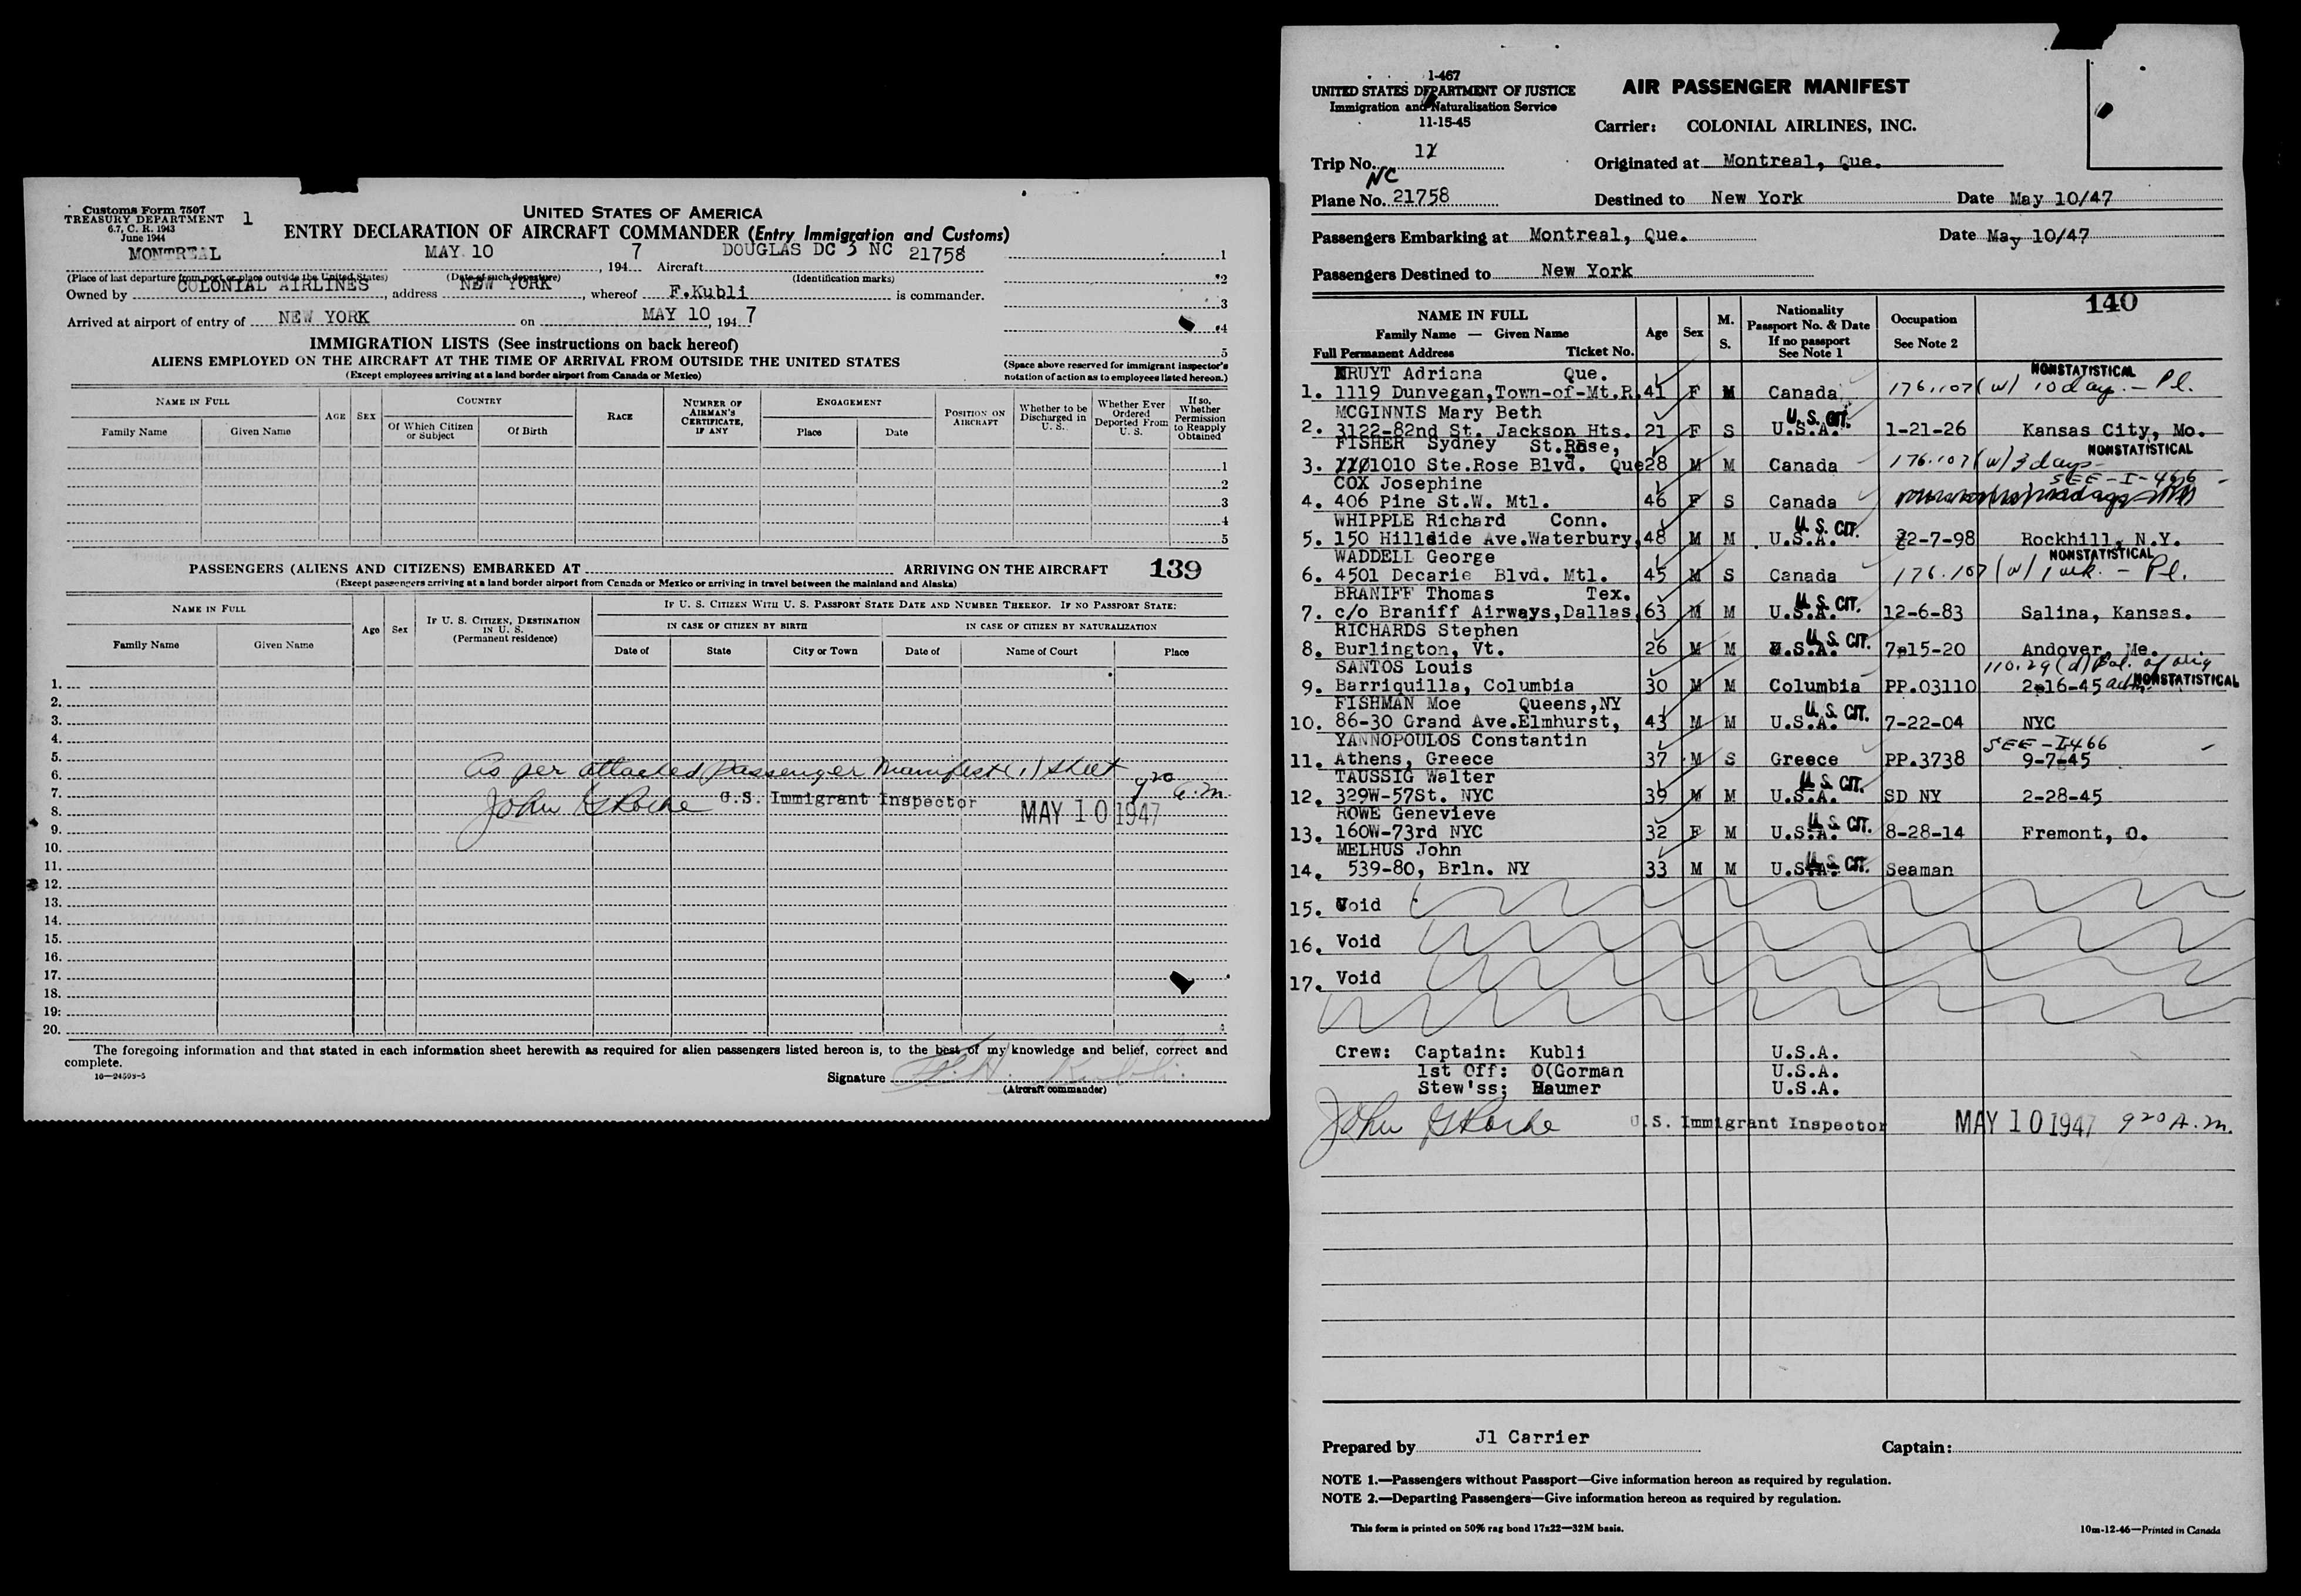 Customs Form 7507
TREASURY DEPARTMENT
6.7, C. R. 1943
June 1944
1
UNITED STATES OF AMERICA
ENTRY DECLARATION OF AIRCRAFT COMMANDER (Entry Immigration and Customs)
MONTREAL MAY 10 , 194 7 Aircraft DOUGLAS DC 3 NC 21758
(Place of last departure from port or place outside the United States) (Date of such departure) (Identification marks)
Owned by COLONIAL AIRLINES , address NEW YORK , whereof F.Kubli is commander.
Arrived at airport of entry of NEW YORK on MAY 10 , 194 7
1
2
3
4
5
IMMIGRATION LISTS (See instructions on back hereof)
ALIENS EMPLOYED ON THE AIRCRAFT AT THE TIME OF ARRIVAL FROM OUTSIDE THE UNITED STATES
(Except employees arriving at a land border airport from Canada or Mexico)
(Space above reserved for immigrant inspector's
notation of action as to employees listed hereon.)
NAME IN FULL
Family Name Given Name
AGE SEX
COUNTRY
Of Which Citizen or Subject Of Birth
RACE
NUMBER OF AIRMAN'S CERTIFICATE, IF ANY
ENGAGEMENT
Place Date
POSITION ON AIRCRAFT
Whether to be Discharged in U. S.
Whether Ever Ordered Deported From U. S.
If so, Whether Permission to Reapply Obtained
1
2
3
4
5
PASSENGERS (ALIENS AND CITIZENS) EMBARKED AT ARRIVING ON THE AIRCRAFT 139
(Except passengers arriving at a land border airport from Canada or Mexico or arriving in travel between the mainland and Alaska)
NAME IN FULL
Family Name Given Name
Age Sex
IF U. S. CITIZEN, DESTINATION IN U. S. (Permanent residence)
IF U. S. CITIZEN WITH U. S. PASSPORT STATE DATE AND NUMBER THEREOF. IF NO PASSPORT STATE:
IN CASE OF CITIZEN BY BIRTH IN CASE OF CITIZEN BY NATURALIZATION
Date of State City or Town Date of Name of Court Place
1.
2.
3.
4.
5.
6. As per attached passenger Manifest (1) sheet 920
7. John G Rocke U.S. Immigrant Inspector a.m.
8. MAY 10 1947
9.
10.
11.
12.
13.
14.
15.
16.
17.
18.
19.
20.
The foregoing information and that stated in each information sheet herewith as required for alien passengers listed hereon is, to the best of my knowledge and belief, correct and
complete.
16—24593-5
Signature F. H. Kubli
(Aircraft commander)
1-467
UNITED STATES DEPARTMENT OF JUSTICE
Immigration and Naturalization Service
11-15-45
AIR PASSENGER MANIFEST
Carrier: COLONIAL AIRLINES, INC.
Trip No. 11 Originated at Montreal, Que.
NC
Plane No. 21758 Destined to New York Date May 10/47
Passengers Embarking at Montreal, Que. Date May 10/47
Passengers Destined to New York
140
NAME IN FULL
Family Name — Given Name
Full Permanent Address Ticket No.
Age Sex M. S.
Nationality
Passport No. & Date
If no passport
See Note 1
Occupation
See Note 2
KRUYT Adriana Que. NONSTATISTICAL
1. 1119 Dunvegan,Town-of-Mt.R. 41 F M Canada 176.107(w) 10 days – Pl.
MCGINNIS Mary Beth U.S. CIT.
2. 3122-82nd St. Jackson Hts. 21 F S U.S.A. 1-21-26 Kansas City, Mo.
FISHER Sydney St.Rose, NONSTATISTICAL
3. 1010 Ste.Rose Blvd. Que 28 M M Canada 176.107(w) 3 days –
COX Josephine SEE – I-466 –
4. 406 Pine St.W. Mtl. 46 F S Canada
WHIPPLE Richard Conn. U.S. CIT.
5. 150 Hillside Ave.Waterbury, 48 M M U.S.A. 2-7-98 Rockhill, N.Y.
WADDELL George NONSTATISTICAL
6. 4501 Decarie Blvd. Mtl. 45 M S Canada 176.107(w) 1 wk. – Pl.
BRANIFF Thomas Tex. U.S. CIT.
7. c/o Braniff Airways,Dallas, 63 M M U.S.A. 12-6-83 Salina, Kansas.
RICHARDS Stephen U.S. CIT.
8. Burlington, Vt. 26 M M U.S.A. 7-15-20 Andover, Me.
SANTOS Louis 110.29(d) Bal. of orig
9. Barriquilla, Columbia 30 M M Columbia PP.03110 2-16-45 adm. NONSTATISTICAL
FISHMAN Moe Queens,NY U.S. CIT.
10. 86-30 Grand Ave.Elmhurst, 43 M M U.S.A. 7-22-04 NYC
YANNOPOULOS Constantin SEE – I466 –
11. Athens, Greece 37 M S Greece PP.3738 9-7-45
TAUSSIG Walter U.S. CIT.
12. 329W-57St. NYC 39 M M U.S.A. SD NY 2-28-45
ROWE Genevieve U.S. CIT.
13. 160W-73rd NYC 32 F M U.S.A. 8-28-14 Fremont, O.
MELHUS John U.S. CIT.
14. 539-80, Brln. NY 33 M M U.S.A. Seaman
15. Void
16. Void
17. Void
Crew: Captain: Kubli U.S.A.
1st Off: O(Gorman U.S.A.
Stew'ss; Haumer U.S.A.
John G Rocke U.S. Immigrant Inspector MAY 10 1947 920 A.m.
Prepared by Jl Carrier Captain:
NOTE 1.—Passengers without Passport—Give information hereon as required by regulation.
NOTE 2.—Departing Passengers—Give information hereon as required by regulation.
This form is printed on 50% rag bond 17x22—32M basis. 10m-12-46—Printed in Canada